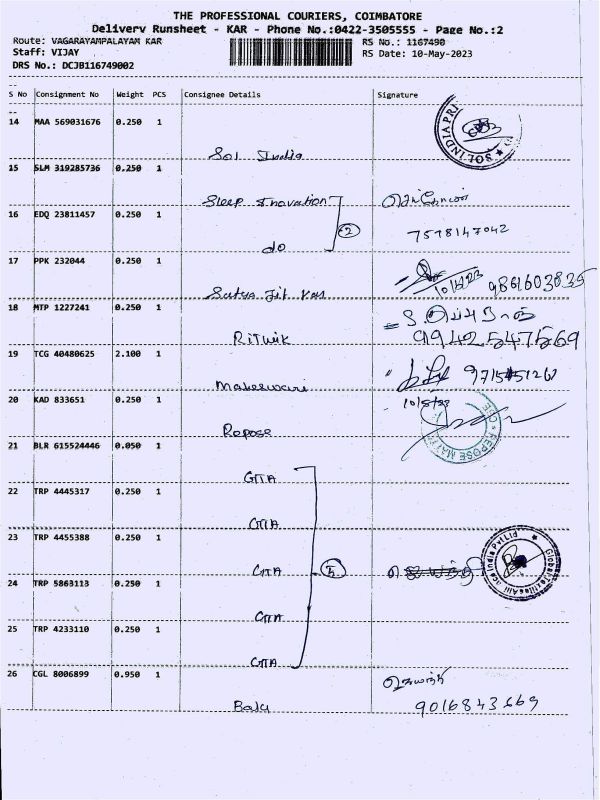 THE PROFESSIONAL COURIERS, COIMBATORE
Delivery Runsheet - KAR - Phone No.:0422-3505555 - Page No.:2
Route: VAGARAYAMPALAYAM KAR RS No.: 1167490
Staff: VIJAY RS Date: 10-May-2023
DRS No.: DCJB116749002
S No Consignment No Weight PCS Consignee Details Signature
14 MAA 569031676 0.250 1
Sol India
SOL INDIA PRI
15 SLM 319285736 0.250 1
Sleep Inovation
16 EDQ 23811457 0.250 1
do
2
7578147042
17 PPK 232044 0.250 1
Satya Jit
10/5/23 9861603835
18 MTP 1227241 0.250 1
Ritwik
9942547569
19 TCG 40480625 2.100 1
Maheswari
20 KAD 833651 0.250 1
Repose
10/5/23
REPOSE MATT
21 BLR 615524446 0.050 1
GTTA
22 TRP 4445317 0.250 1
GTTA
23 TRP 4455388 0.250 1
GTTA
5
Global Textiles Alliance India Pvt Ltd
24 TRP 5863113 0.250 1
GTTA
25 TRP 4233110 0.250 1
GTTA
26 CGL 8006899 0.950 1
Balu
9016843669